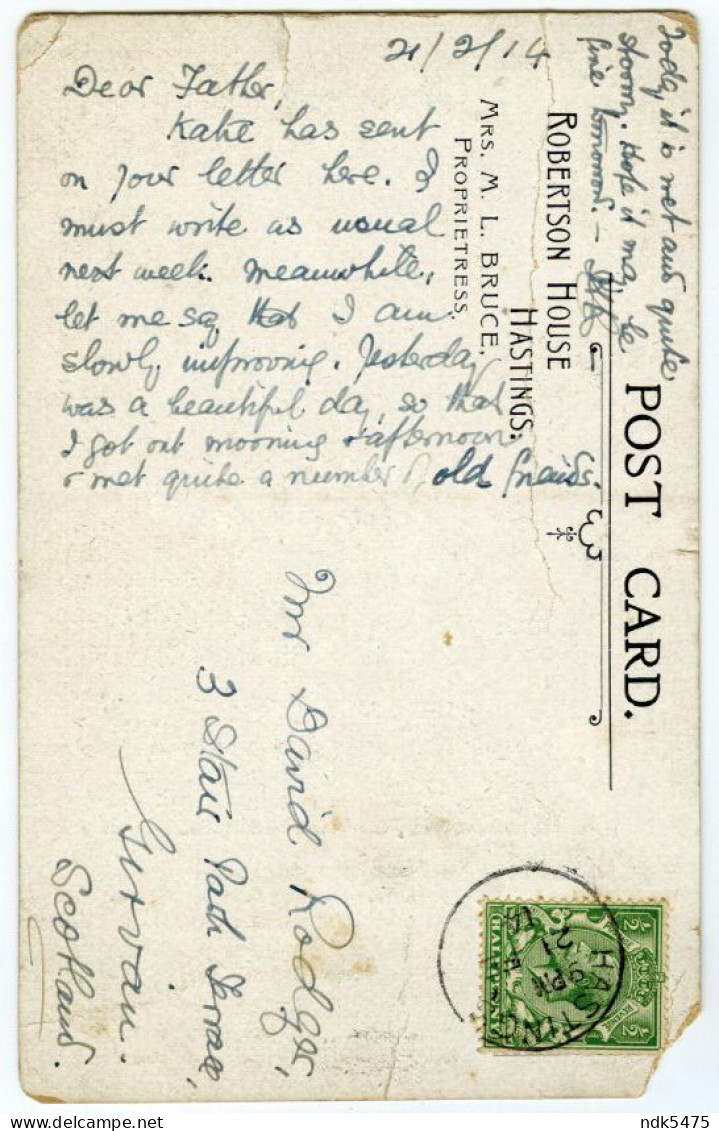 21/2/14
Dear Father,
Katie has sent
on your letter here. I
must write as usual
next week. Meanwhile,
let me say that I am
slowly improving. Yesterday
was a beautiful day, so that
I got out morning & afternoon
& met quite a number of old friends.
Today it is wet and quite
stormy. Hope it may be
fine tomorrow. —
POST CARD.
ROBERTSON HOUSE
HASTINGS.
MRS. M. L. BRUCE,
PROPRIETRESS.
Mr David Rodger,
3 Stair Park Terrace,
Girvan.
Scotland.
HASTINGS
PM
21
14
1/2 1/2
HALFPENNY
ndk5475